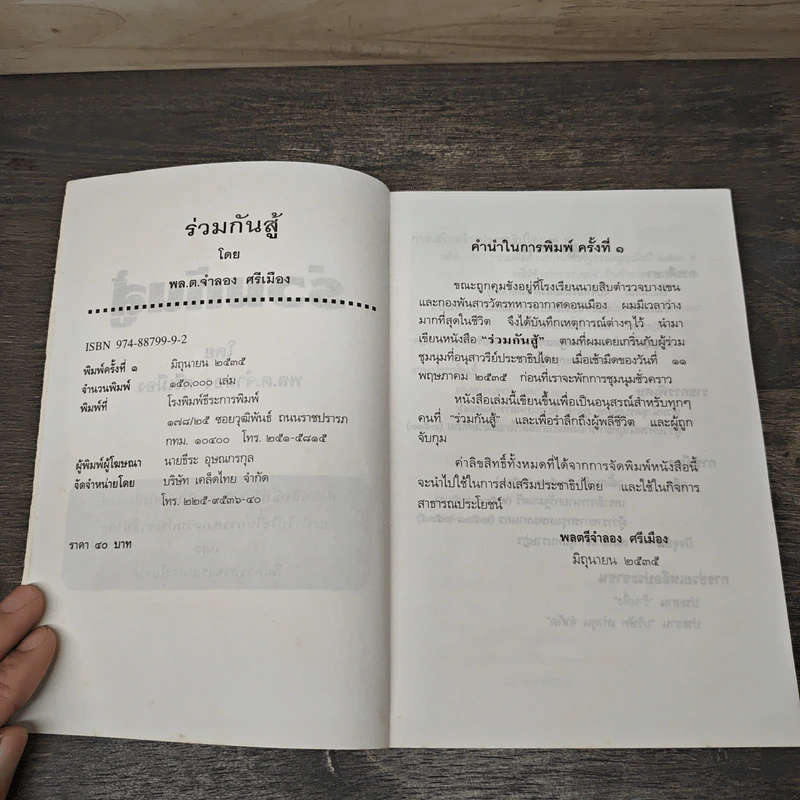 ร่วมกันสู้
โดย
พล.ต.จำลอง ศรีเมือง
ISBN 974-88799-9-2
พิมพ์ครั้งที่ ๑ มิถุนายน ๒๕๓๕
จำนวนพิมพ์ ๑๕๐,๐๐๐ เล่ม
พิมพ์ที่ โรงพิมพ์ธีระการพิมพ์
๑๗๘/๒๕ ซอยวุฒิพันธ์ ถนนราชปรารภ
กทม. ๑๐๔๐๐ โทร. ๒๕๑-๕๘๑๕
ผู้พิมพ์ผู้โฆษณา นายธีระ อุษณกรกุล
จัดจำหน่ายโดย บริษัท เคล็ดไทย จำกัด
โทร. ๒๒๕-๙๕๓๖-๔๐
ราคา ๔๐ บาท
คำนำในการพิมพ์ ครั้งที่ ๑
ขณะถูกคุมขังอยู่ที่โรงเรียนนายสิบตำรวจบางเขน
และกองพันสารวัตรทหารอากาศดอนเมือง ผมมีเวลาว่าง
มากที่สุดในชีวิต จึงได้บันทึกเหตุการณ์ต่างๆไว้ นำมา
เขียนหนังสือ "ร่วมกันสู้" ตามที่ผมเคยเกริ่นกับผู้ร่วม
ชุมนุมที่อนุสาวรีย์ประชาธิปไตย เมื่อเช้ามืดของวันที่ ๑๑
พฤษภาคม ๒๕๓๕ ก่อนที่เราจะพักการชุมนุมชั่วคราว
หนังสือเล่มนี้เขียนขึ้นเพื่อเป็นอนุสรณ์สำหรับทุกๆ
คนที่ "ร่วมกันสู้" และเพื่อรำลึกถึงผู้พลีชีวิต และผู้ถูก
จับกุม
ค่าลิขสิทธิ์ทั้งหมดที่ได้จากการจัดพิมพ์หนังสือนี้
จะนำไปใช้ในการส่งเสริมประชาธิปไตย และใช้ในกิจการ
สาธารณประโยชน์
พลตรีจำลอง ศรีเมือง
มิถุนายน ๒๕๓๕